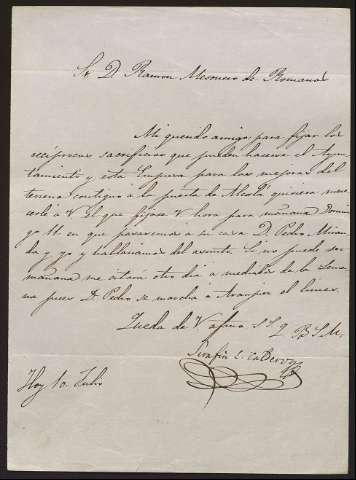 Sr D. Ramon Mesonero de Romanos
Mi querido amigo: para fijar los
reciprocos sacrificios que pueden hacerse el Ayun-
tamiento y esta Empresa para las mejoras del
terreno contiguo á la puerta de Alcalá quisiera mere
cerle á V el que fijase V hora para mañana Domin
go 11 en que pasaremos á su casa D. Pedro Miran
da y yo y hablariamos del asunto. Si no puede ser
mañana me citará otro dia á mediados de la Sema
na pues D. Pedro se marcha á Aranjuez el lunes.
Queda de V afmo S. S. Q. B. S. M.
Serafin E. Calderon
Hoy 10 Julio